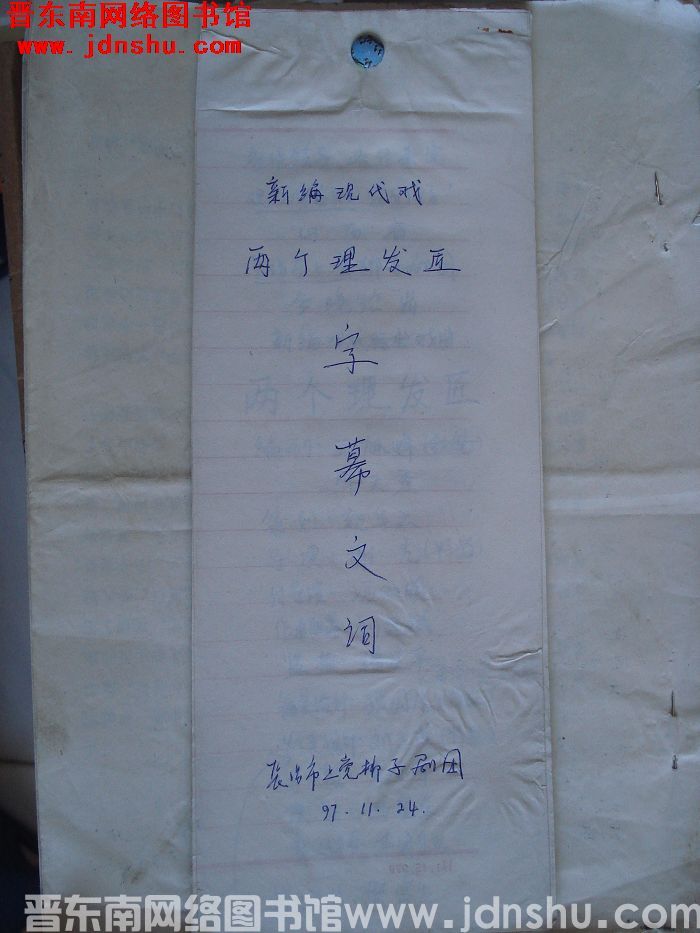 晋东南网络图书馆
www.jdnshu.com
新编现代戏
两个理发匠
字
幕
文
词
长治市上党梆子剧团
97.11.24.
两个理发匠
晋东南网络图书馆www.jdnshu.com